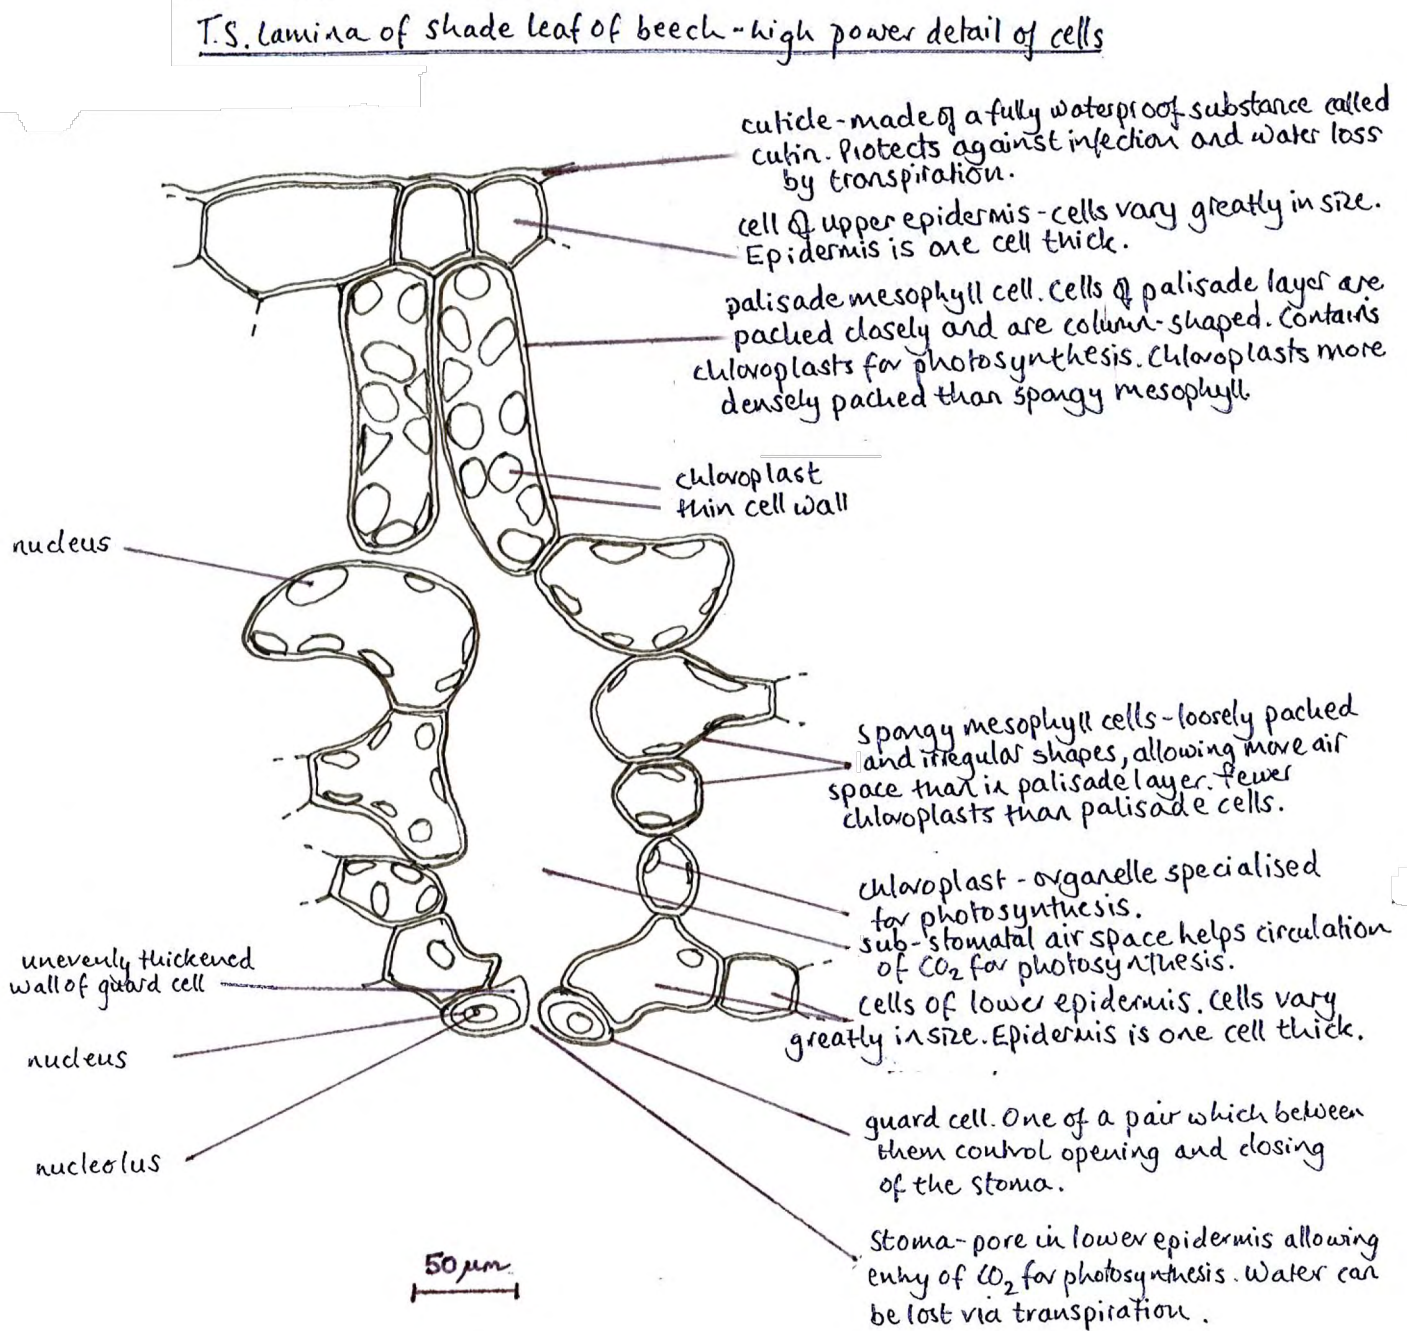 T.S. lamina of shade leaf of beech - high power detail of cells
cuticle - made of a fully waterproof substance called
cutin. Protects against infection and water loss
by transpiration.
cell of upper epidermis - cells vary greatly in size.
Epidermis is one cell thick.
palisade mesophyll cell. Cells of palisade layer are
packed closely and are column-shaped. Contains
chloroplasts for photosynthesis. Chloroplasts more
densely packed than spongy mesophyll.
chloroplast
thin cell wall
nucleus
spongy mesophyll cells - loosely packed
and irregular shapes, allowing more air
space than in palisade layer. Fewer
chloroplasts than palisade cells.
chloroplast - organelle specialised
for photosynthesis.
sub-stomatal air space helps circulation
of CO₂ for photosynthesis.
unevenly thickened
wall of guard cell
cells of lower epidermis. Cells vary
greatly in size. Epidermis is one cell thick.
nucleus
guard cell. One of a pair which between
them control opening and closing
of the stoma.
nucleolus
Stoma - pore in lower epidermis allowing
entry of CO₂ for photosynthesis. Water can
be lost via transpiration.
50 μm